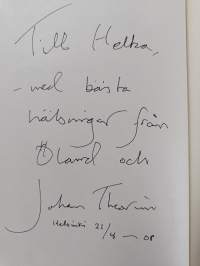 Till Helka,
– med bästa
hälsningar från
Öland och
Johan Theorin
Helsinki 22/4 – 08